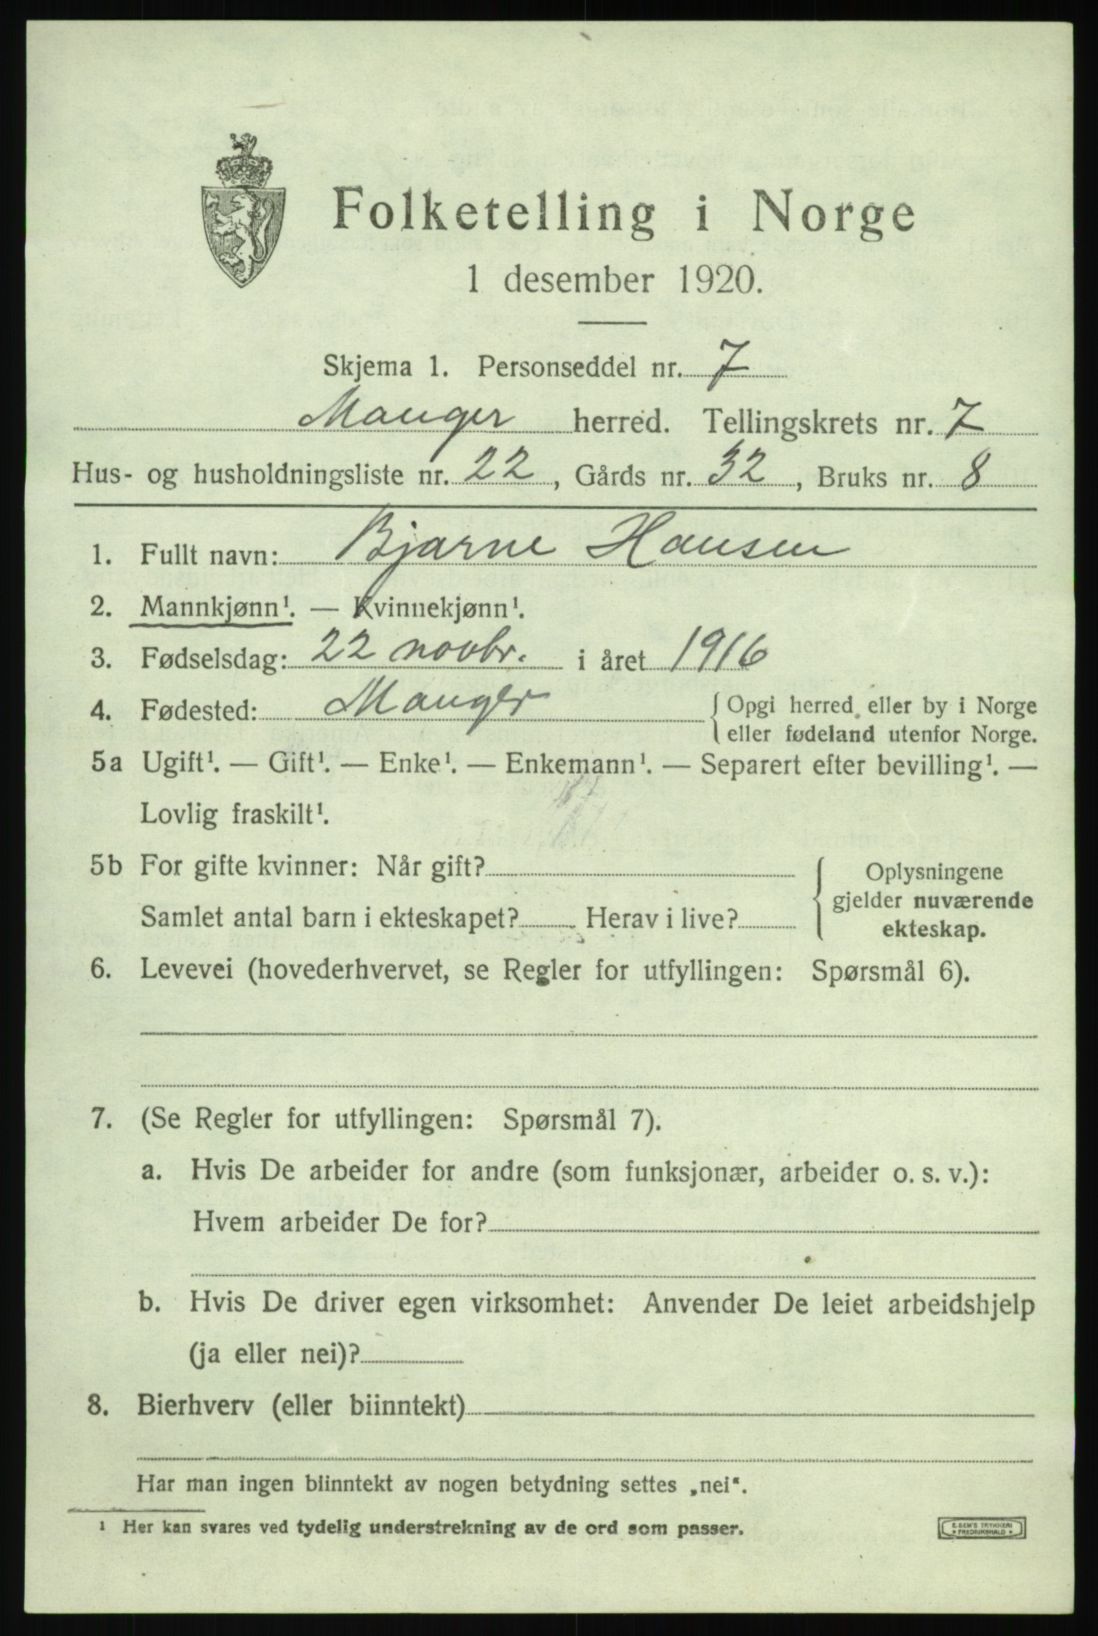 Folketelling i Norge
1 desember 1920.
Skjema 1. Personseddel nr. 7
Manger herred. Tellingskrets nr. 7
Hus- og husholdningsliste nr. 22, Gårds nr. 32, Bruks nr. 8
1. Fullt navn: Bjarne Hansen
2. Mannkjønn¹. — Kvinnekjønn¹.
3. Fødselsdag: 22 novbr. i året 1916
4. Fødested: Manger { Opgi herred eller by i Norge
eller fødeland utenfor Norge.
5a Ugift¹. — Gift¹. — Enke¹. — Enkemann¹. — Separert efter bevilling¹. —
Lovlig fraskilt¹.
5b For gifte kvinner: Når gift?
Samlet antal barn i ekteskapet? Herav i live?
{ Oplysningene
gjelder nuværende
ekteskap.
6. Levevei (hovederhvervet, se Regler for utfyllingen: Spørsmål 6).
7. (Se Regler for utfyllingen: Spørsmål 7).
a. Hvis De arbeider for andre (som funksjonær, arbeider o. s. v.):
Hvem arbeider De for?
b. Hvis De driver egen virksomhet: Anvender De leiet arbeidshjelp
(ja eller nei)?
8. Bierhverv (eller biinntekt)
Har man ingen biinntekt av nogen betydning settes „nei“.
¹ Her kan svares ved tydelig understrekning av de ord som passer.
E. SEM'S TRYKKERI
• FREDRIKSHALD •